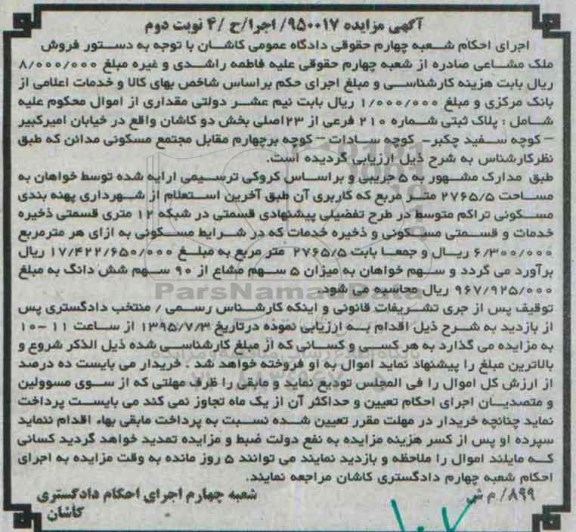 آگهی مزایده ۹۵۰۰۱۷/ اجرا/ح /۴ نوبت دوم
اجرای احکام شعبه چهارم حقوقی دادگاه عمومی کاشان با توجه به دستور فروش
ملک مشاعی صادره از شعبه چهارم حقوقی علیه فاطمه راشدی و غیره مبلغ ۸/۰۰۰/۰۰۰
ریال بابت هزینه کارشناسی و مبلغ اجرای حکم براساس شاخص بهای کالا و خدمات اعلامی از
بانک مرکزی و مبلغ ۱/۰۰۰/۰۰۰ ریال بابت نیم عشر دولتی مقداری از اموال محکوم علیه
شامل : پلاک ثبتی شماره ۲۱۰ فرعی از ۲۳اصلی بخش دو کاشان واقع در خیابان امیرکبیر
– کوچه سفید چکبر- کوچه سادات – کوچه برچهارم مقابل مجتمع مسکونی مدائن که طبق
نظرکارشناس به شرح ذیل ارزیابی گردیده است.
طبق مدارک مشهور به ۵ جریبی و براساس کروکی ترسیمی ارایه شده توسط خواهان به
مساحت ۲۷۶۵/۵ متر مربع که کاربری آن طبق آخرین استعلام از شهرداری پهنه بندی
مسکونی تراکم متوسط در طرح تفضیلی پیشنهادی قسمتی در شبکه ۱۲ متری قسمتی ذخیره
خدمات و قسمتی مسکونی و ذخیره خدمات که در شرایط مسکونی به ازای هر مترمربع
۶/۳۰۰/۰۰۰ ریال و جمعا بابت ۲۷۶۵/۵ متر مربع به مبلغ ۱۷/۴۲۲/۶۵۰/۰۰۰ ریال
برآورد می گردد و سهم خواهان به میزان ۵ سهم مشاع از ۹۰ سهم شش دانگ به مبلغ
۹۶۷/۹۲۵/۰۰۰ ریال محاسبه می شود.
توقیف پس از جری تشریفات قانونی و اینکه کارشناس رسمی / منتخب دادگستری پس
از بازدید به شرح ذیل اقدام به ارزیابی نموده درتاریخ ۱۳۹۵/۷/۳ از ساعت ۱۱ -۱۰
به مزایده می گذارد به هر کسی و کسانی که از مبلغ کارشناسی شده ذیل الذکر شروع و
بالاترین مبلغ را پیشنهاد نماید اموال به او فروخته خواهد شد . خریدار می بایست ده درصد
از ارزش کل اموال را فی المجلس تودیع نماید و مابقی را ظرف مهلتی که از سوی مسوولین
و متصدیان اجرای احکام تعیین و حداکثر آن از یک ماه تجاوز نمی کند می بایست پرداخت
نماید چنانچه خریدار در مهلت مقرر تعیین شده نسبت به پرداخت مابقی بهاء اقدام ننماید
سپرده او پس از کسر هزینه مزایده به نفع دولت ضبط و مزایده تمدید خواهد گردید کسانی
که مایلند اموال را ملاحظه و بازدید نمایند می توانند ۵ روز مانده به وقت مزایده به اجرای
احکام شعبه چهارم دادگستری کاشان مراجعه نمایند.
۸۹۹/ م ش
شعبه چهارم اجرای احکام دادگستری
کاشان
ParsNamadData
۱۰۷